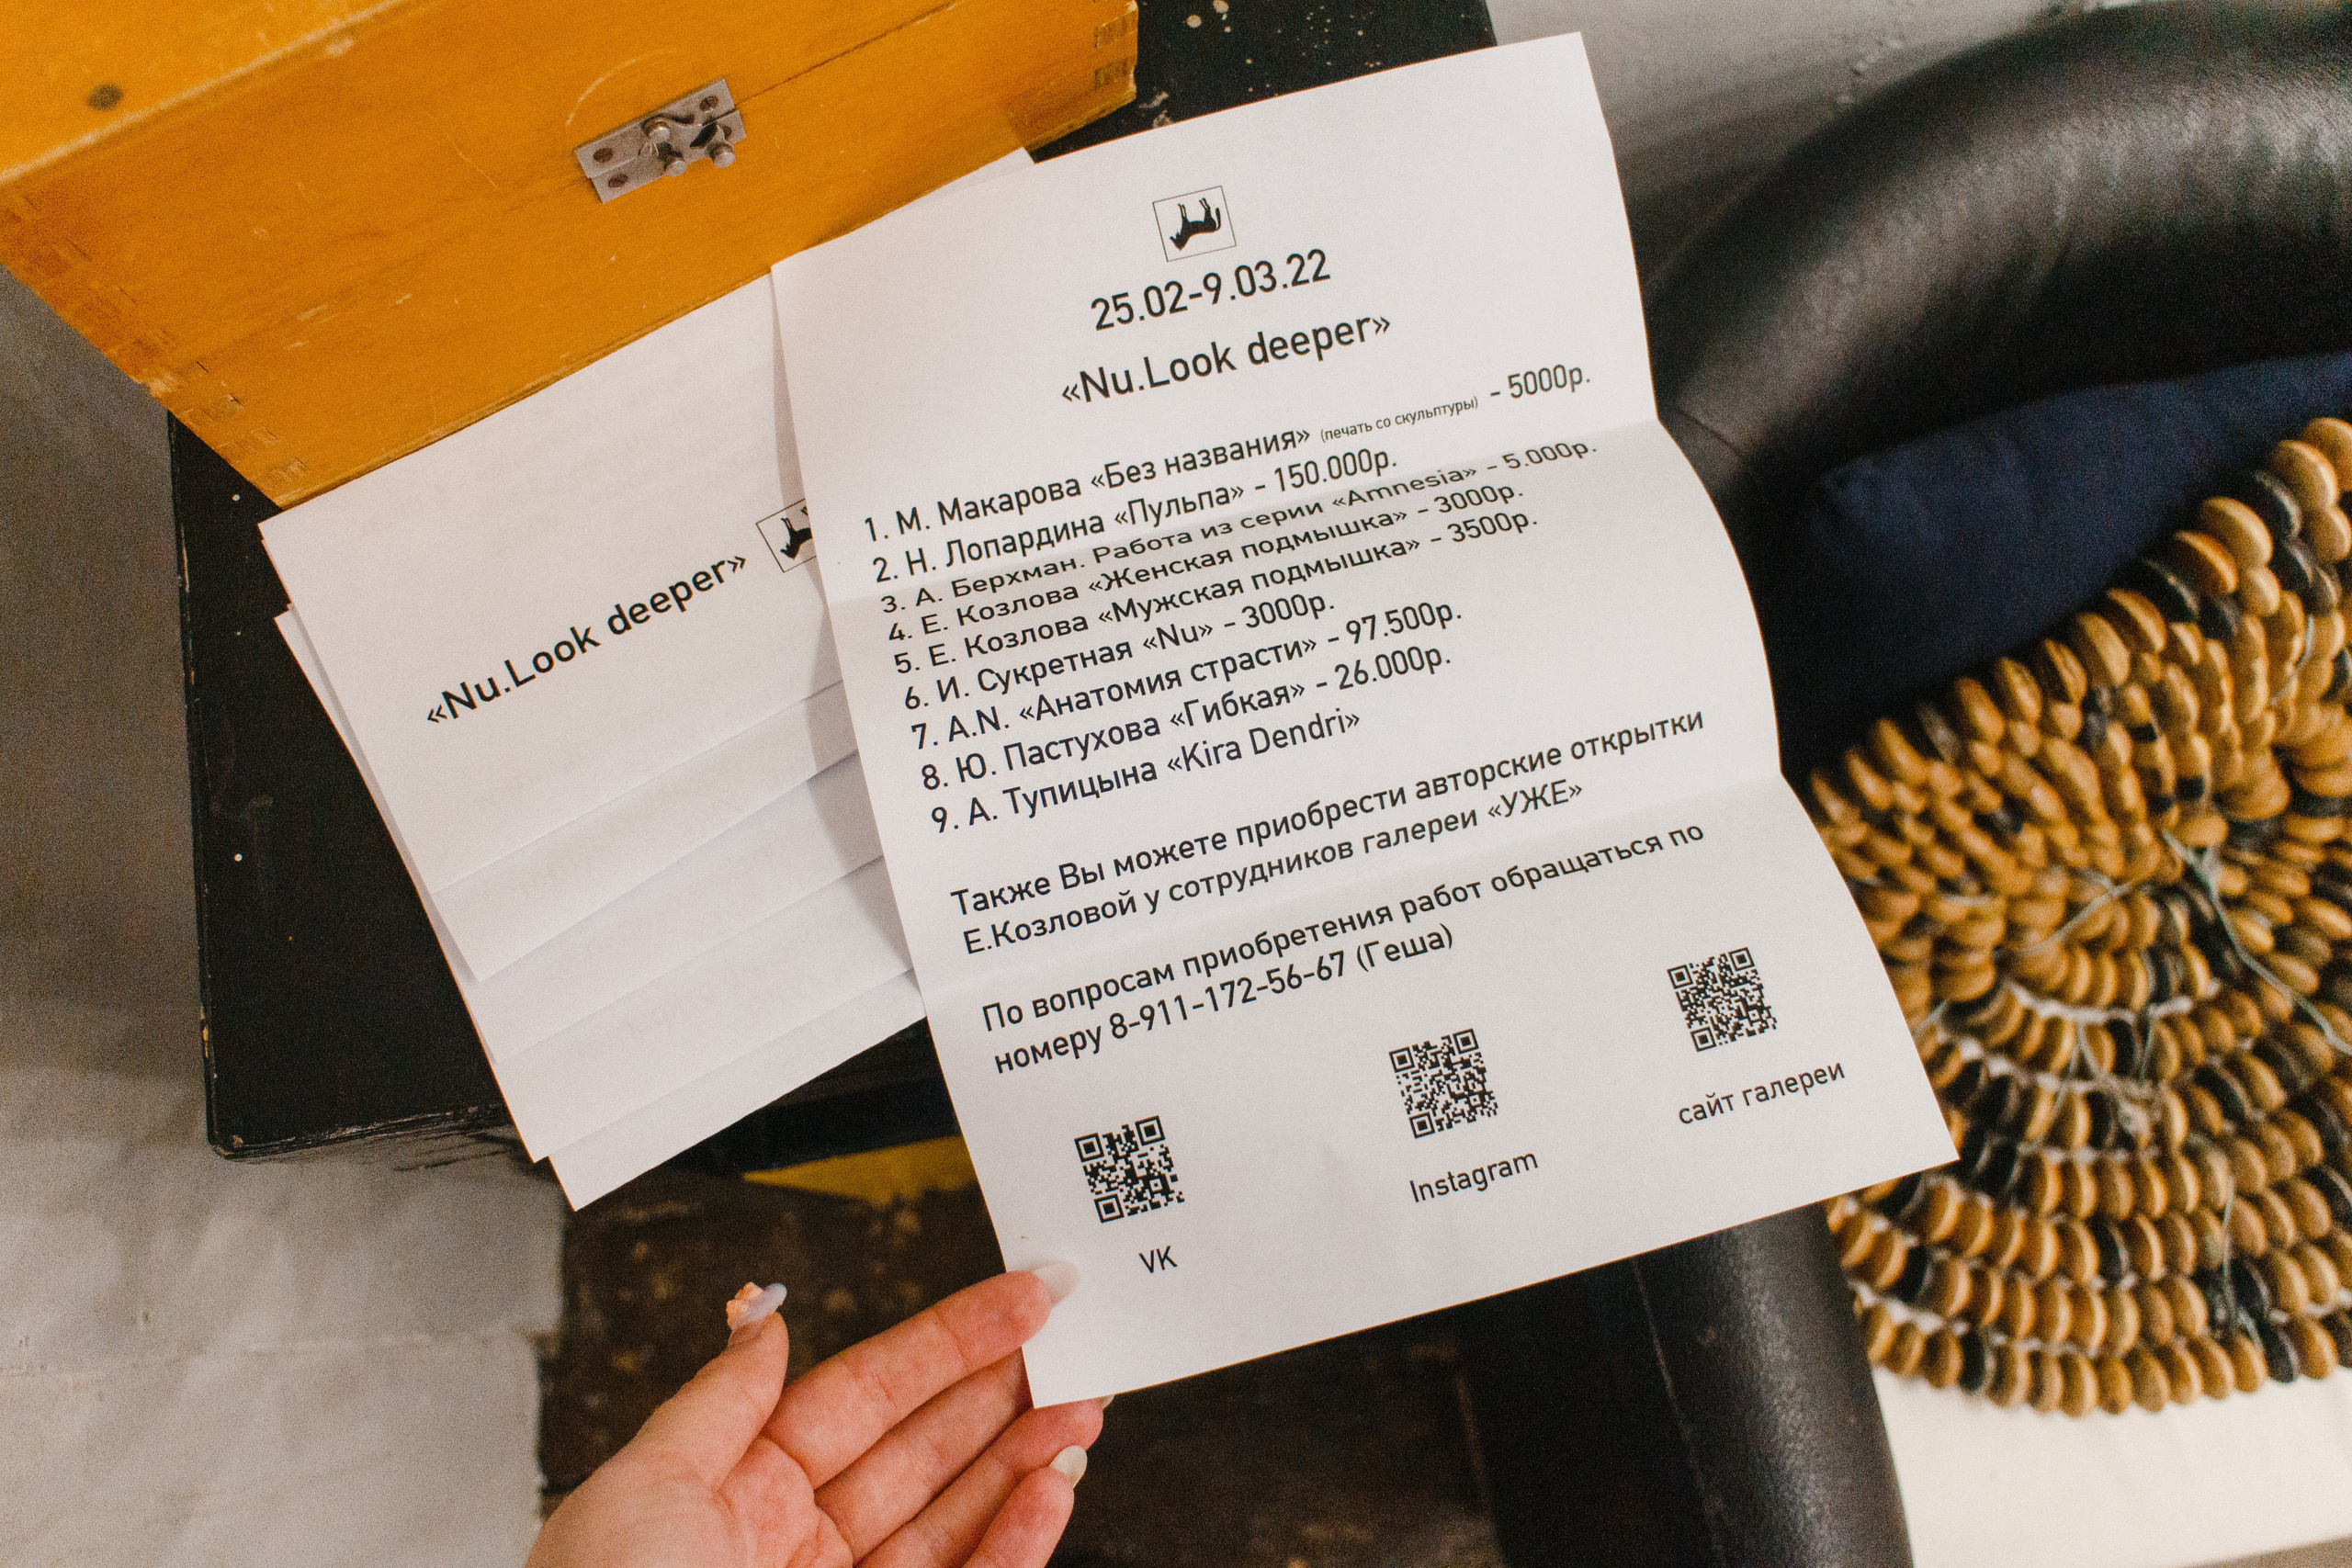 25.02-9.03.22
«Nu.Look deeper»
1. М. Макарова «Без названия» (печать со скульптуры) - 5000р.
2. Н. Лопардина «Пульпа» - 150.000р.
3. А. Берхман. Работа из серии «Amnesia» - 5.000р.
4. Е. Козлова «Женская подмышка» - 3000р.
5. Е. Козлова «Мужская подмышка» - 3500р.
6. И. Сукретная «Nu» - 3000р.
7. A.N. «Анатомия страсти» - 97.500р.
8. Ю. Пастухова «Гибкая» - 26.000р.
9. А. Тупицына «Kira Dendri»
Также Вы можете приобрести авторские открытки
Е.Козловой у сотрудников галереи «УЖЕ»
По вопросам приобретения работ обращаться по
номеру 8-911-172-56-67 (Геша)
VK
Instagram
сайт галереи
«Nu.Look deeper»